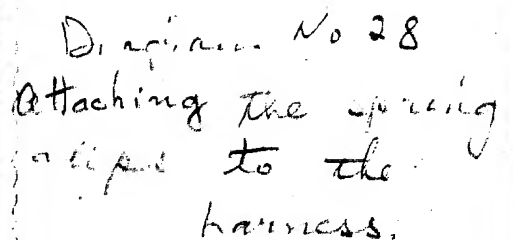 Diagram No 28
Attaching the spring
clips to the
harness.